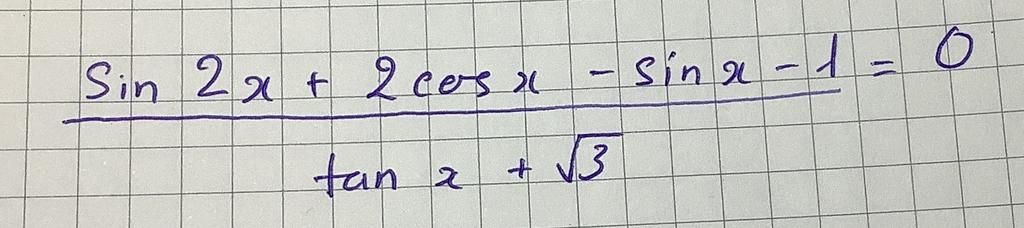 sin 2x + 2cos x - sin x - 1 = 0
tan x + √3